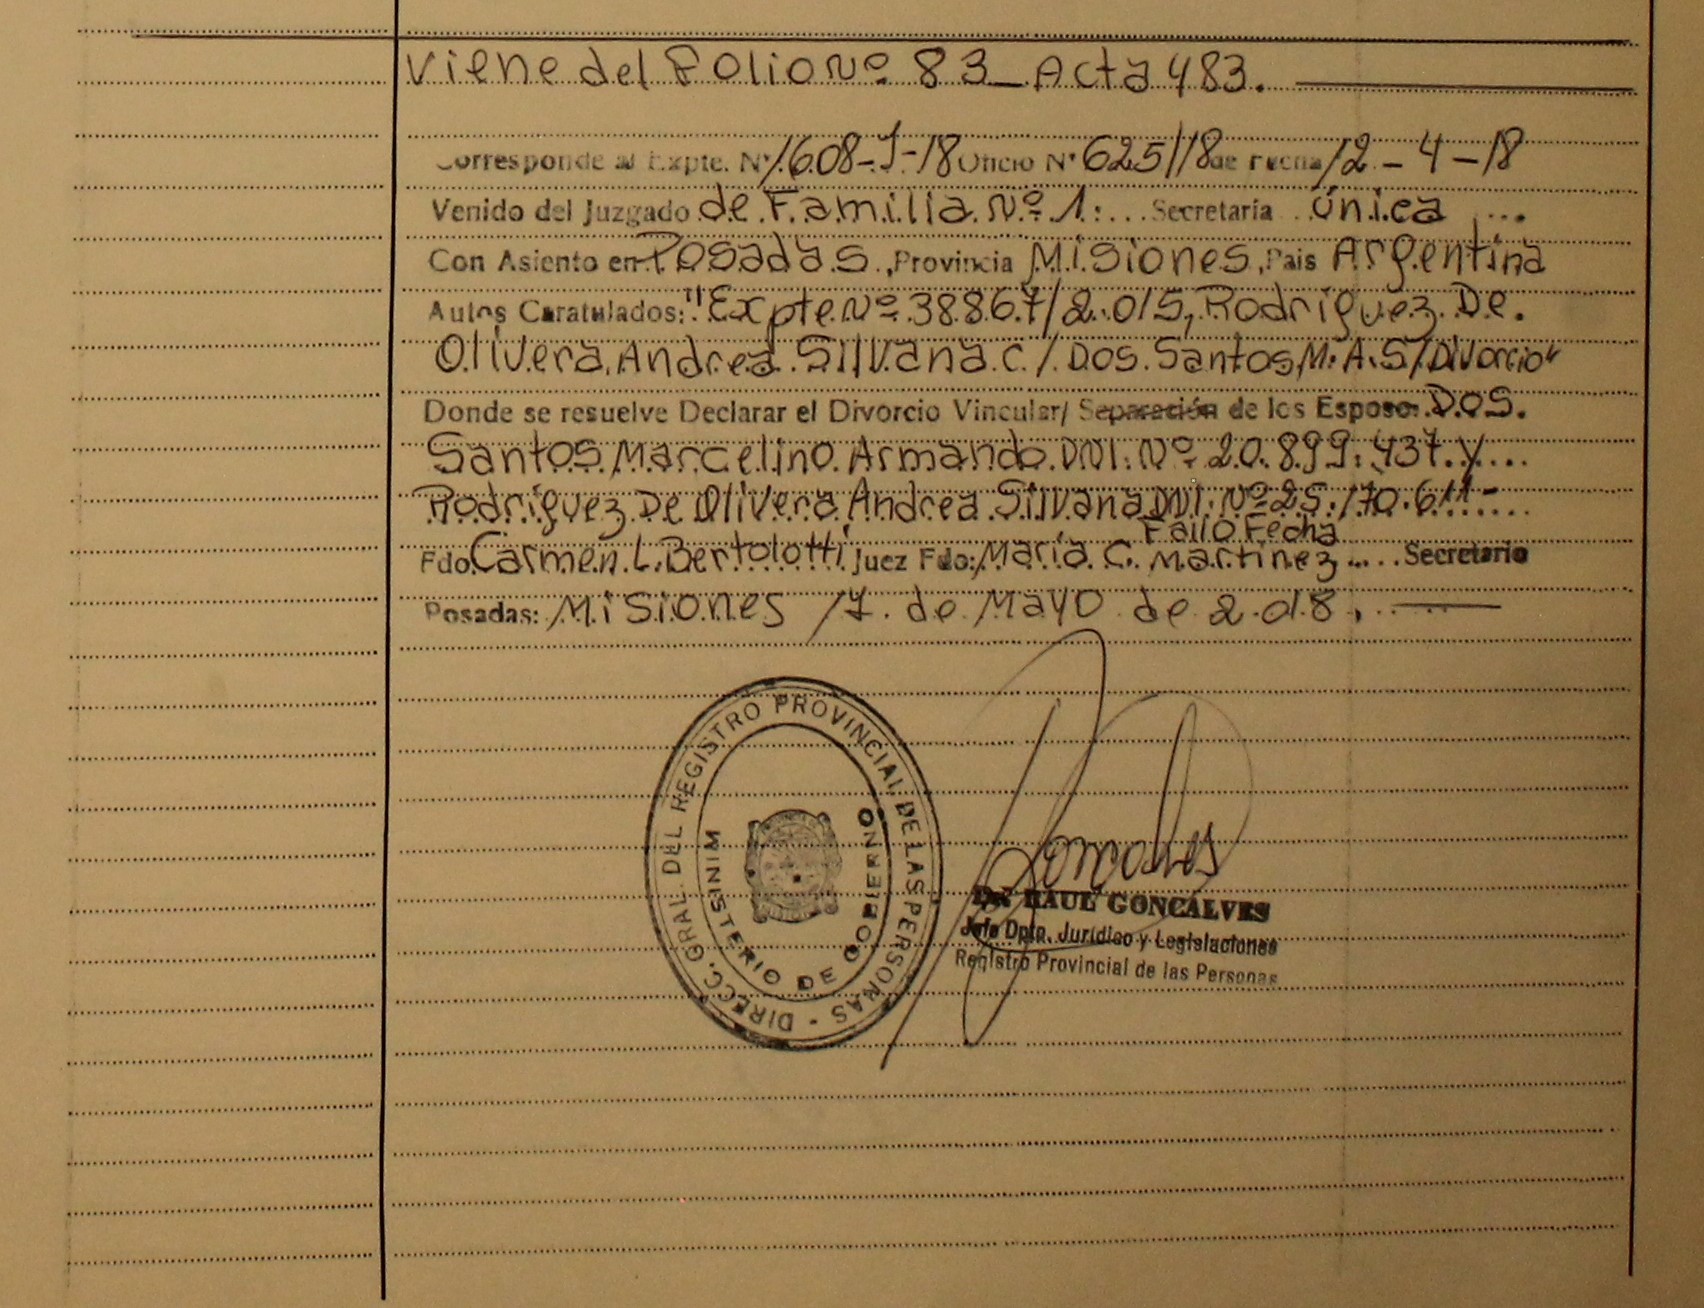 Viene del Folio Nº 83 _ Acta 483.
Corresponde al Expte. Nº 1608-J-18 Oficio Nº 625/18 de Fecha 12-4-18
Venido del Juzgado de Familia Nº 1. Secretaría única
Con Asiento en Posadas, Provincia Misiones, Pais Argentina
Autos Caratulados: "Expte Nº 38867/2.015, Rodríguez De
Olivera, Andrea Silvana c/ Dos Santos, M.A. S/Divorcio"
Donde se resuelve Declarar el Divorcio Vincular/ Separación de los Esposos Dos
Santos Marcelino Armando DNI. Nº 20.899.437 y
Rodríguez De Olivera Andrea Silvana DNI. Nº 25.170.611-
Fallo Fecha
Fdo. Carmen L. Bertolotti Juez Fdo: María C. Martínez Secretario
Posadas: Misiones 17 de Mayo de 2.018.
DIRECC. GRAL. DEL REGISTRO PROVINCIAL DE LAS PERSONAS -
MINISTERIO DE GOBIERNO
Goncalves
Dr. RAUL GONCALVES
Jefe Dpto. Jurídico y Legislaciones
Registro Provincial de las Personas